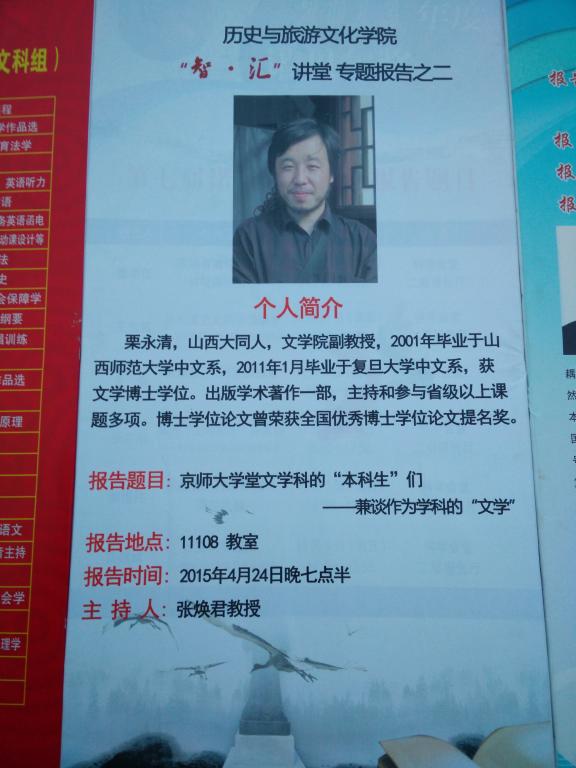 历史与旅游文化学院
“智·汇”讲堂 专题报告之二
个人简介
栗永清，山西大同人，文学院副教授，2001年毕业于山
西师范大学中文系，2011年1月毕业于复旦大学中文系，获
文学博士学位。出版学术著作一部，主持和参与省级以上课
题多项。博士学位论文曾荣获全国优秀博士学位论文提名奖。
报告题目：京师大学堂文学科的“本科生”们
——兼谈作为学科的“文学”
报告地点：11108 教室
报告时间：2015年4月24日晚七点半
主 持 人：张焕君教授
文科组）
程
学作品选
育法学
英语听力
语
务英语函电
动课设计等
法
史
会保障学
纲要
训练
作品选
原理
语文
音主持
会学
理学
报告
报
报
报
耦
然
本
国